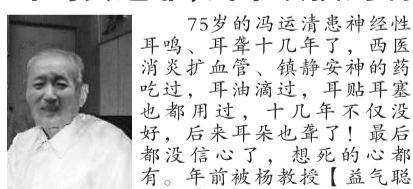 75岁的冯运清患神经性
耳鸣、耳聋十几年了，西医
消炎扩血管、镇静安神的药
吃过，耳油滴过，耳贴耳塞
也都用过，十几年不仅没
好，后来耳朵也聋了！最后
都没信心了，想死的心都
有。年前被杨教授【益气聪